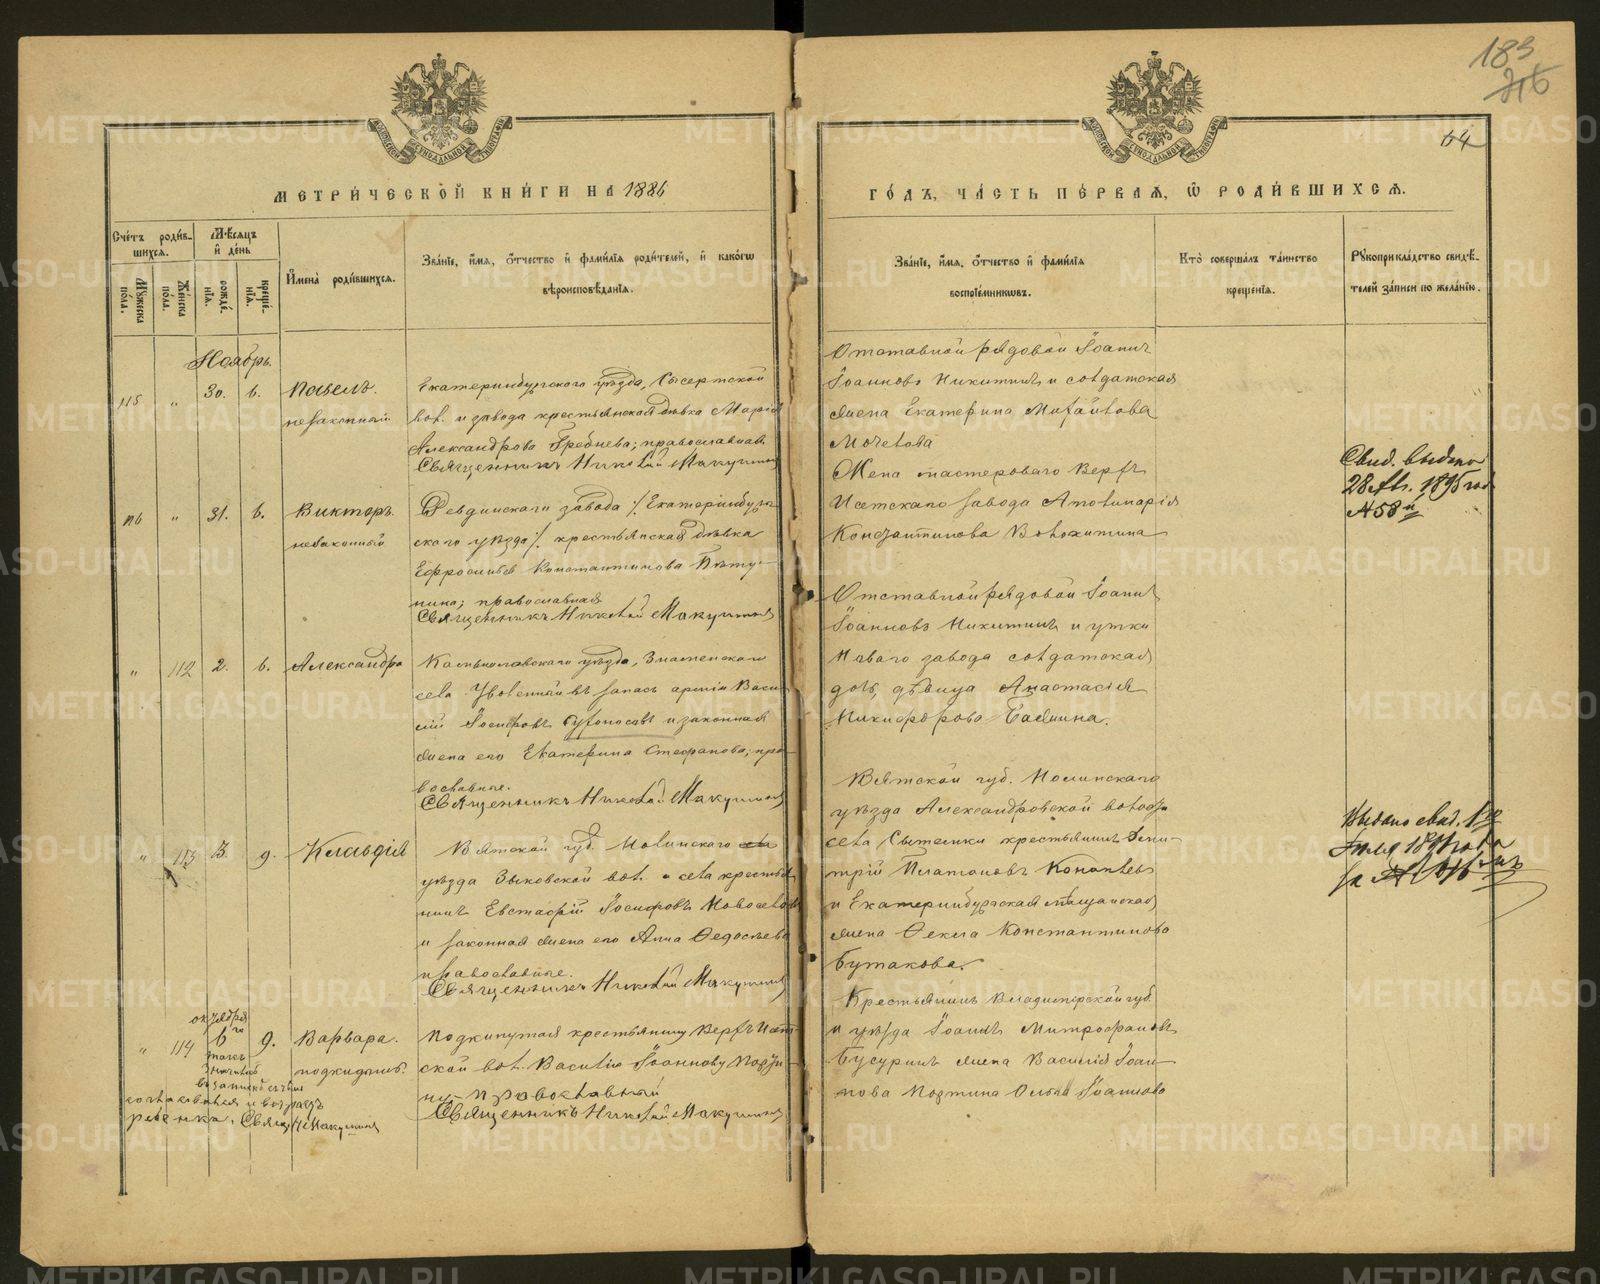 183
64
МЕТРИ́ЧЕСКОЙ КНИ́ГИ НА 1886
ГО́ДЪ, ЧА́СТЬ ПЕ́РВАѦ, Ѿ РОДИ́ВШИХСѦ.
Сче́тъ роди́в-
шихсѧ.
Мѣ́сѧцъ
и҆ де́нь
Мꙋ́жеска
по́ла.
Же́нска
по́ла.
рожде́-
нїѧ.
креще́-
нїѧ.
И҆мена̀ роди́вшихсѧ.
Зва́нїе, и҆́мѧ, ѻ҆́тчество и҆ фамѵ́лїѧ роди́телей, и҆ како́гѡ
вѣроисповѣ́данїѧ.
Зва́нїе, и҆́мѧ, ѻ҆́тчество и҆ фамѵ́лїѧ
воспрїе́мникѡвъ.
Кто̀ соверша́лъ та́инство
креще́нїѧ.
Рꙋкоприкла́дство свидѣ́-
телей за́писи по жела́нїю.
Ноябрь.
115 " 30. 6. Павелъ.
незаконный
Екатеринбургского уѣзда, Сысертской
вол. и завода крестьянская дѣвка Марія
Александрова Гребнева; православная
Священникъ Николай Макушинъ
Отставной рядовой Іоаннъ
Іоанновъ Никитинъ и солдатская
жена Екатерина Михайлова
Мочалова
116 " 31. 6. Викторъ.
незаконный
Ревдинскаго завода /. Екатеринбург-
скаго уѣзда /. крестьянская дѣвка
Ефросинья Константинова
православная
Священникъ Николай Макушинъ
Жена мастероваго Верхъ
Исетскаго завода Аполинарія
Константинова Волохитина
Свид. выдано
28 1895 год
№ 58
" 112 2. 6. Александра
Камышловскаго уѣзда, Знаменскаго
села Уволенный въ запасъ арміи Васи-
лій Іосифовъ Сухоносовъ и законная
жена его Екатерина Стефанова; пра-
вославные.
Священникъ Николай Макушинъ
Отставной рядовой Іоаннъ
Іоанновъ Никитинъ и
завода солдатская
дочь, дѣвица Анастасія
Никифорова
" 113 3. 9. Клавдія
Вятской губ. Нолинскаго
уѣзда Зыковской вол. села крестья-
нинъ Евстафій Іосифовъ Новоселовъ
и законная жена его Анна Ѳедосѣева
православные.
Священникъ Николай Макушинъ
Вятской губ. Нолинскаго
уѣзда Александровской волости
села крестьянинъ Дми-
трій Платоновъ
и Екатеринбургская мѣщанская
жена Ѳекла Константинова
Бутакова.
Выдано свид.
Іюля года
за №
октября
" 114 6 9. Варвара.
подкидышъ.
Подкинутая крестьянину Верхъ Исет-
ской вол. Василію Іоаннову
православный
Священникъ Николай Макушинъ
въ записи
возрастъ
ребенка. Свящ. Н Макушинъ
Крестьянинъ Владимірской губ.
и уѣзда Іоаннъ Митрофановъ
жена Василія Іоан-
нова Ольга Іоаннова